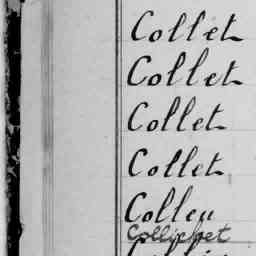 Collet
Collet
Collet
Collet
Colleu
Collichet